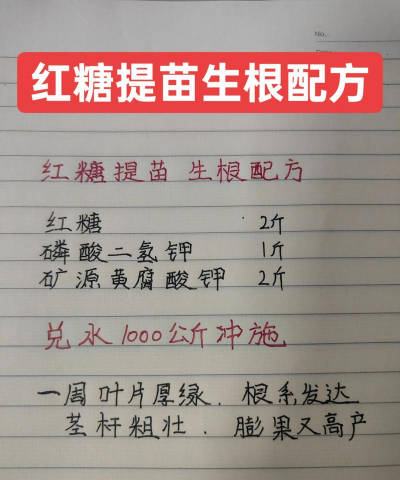 No.
红糖提苗生根配方
红糖提苗 生根配方
红糖 2斤
磷酸二氢钾 1斤
矿源黄腐酸钾 2斤
兑水1000公斤冲施
一周叶片厚绿.根系发达
茎杆粗壮.膨果又高产